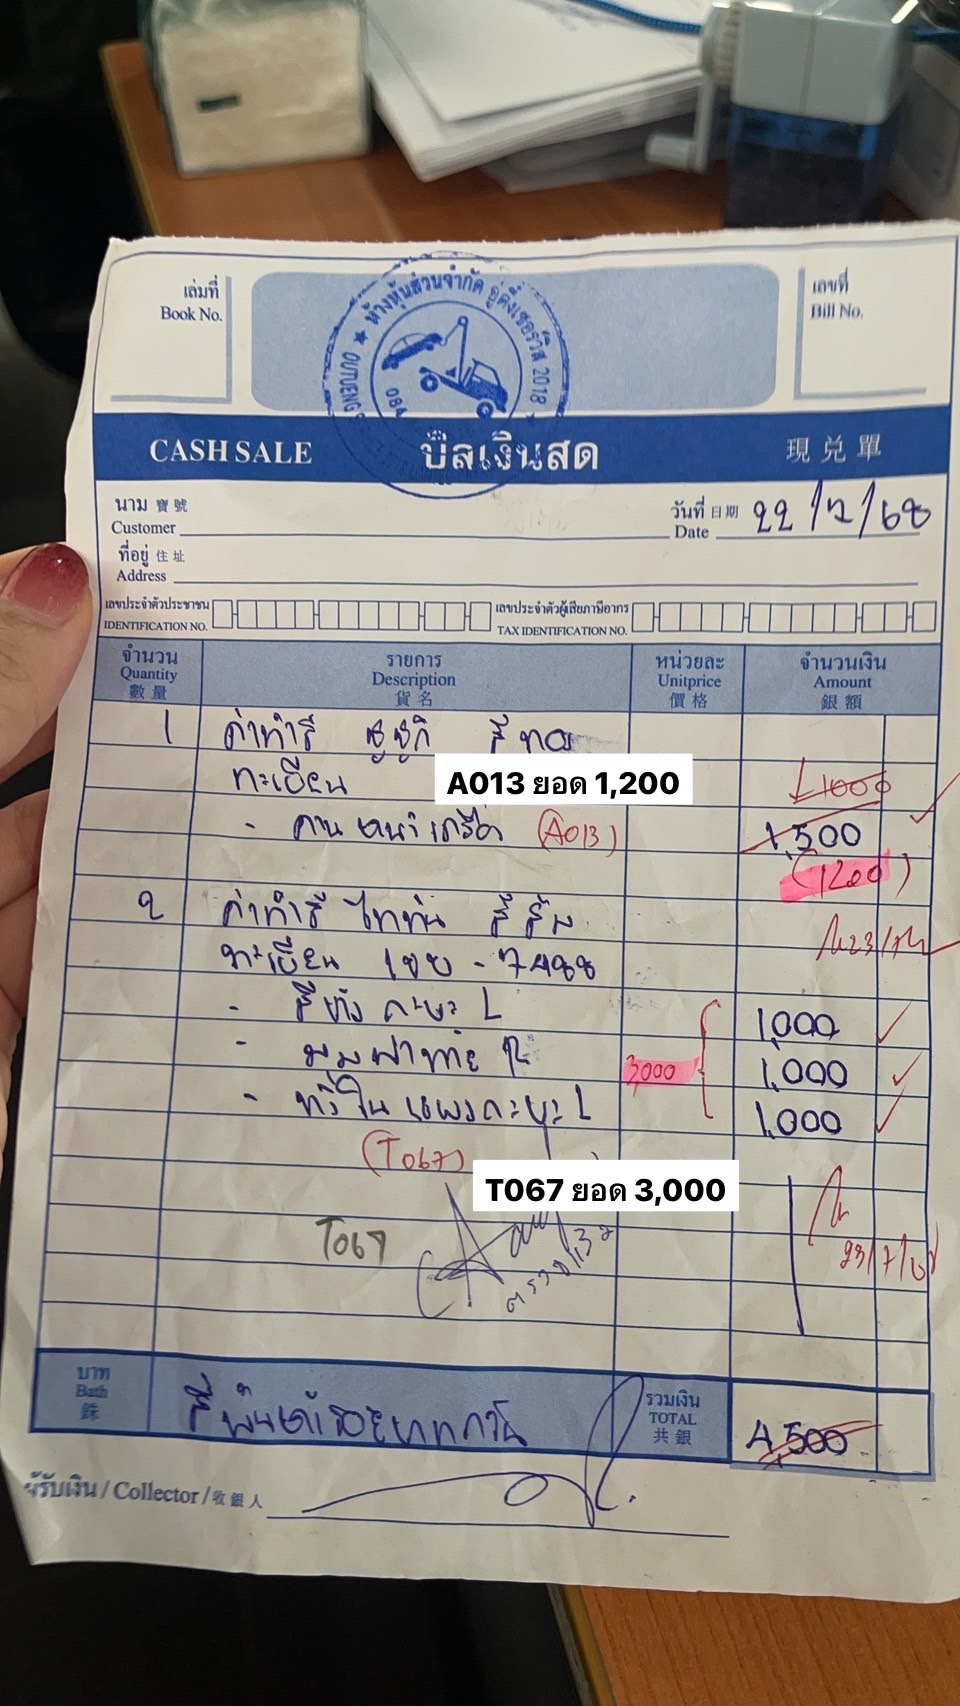 เล่มที่
Book No.
ห้างหุ้นส่วนจำกัด อู่ตึ๋งเซอร์วิส 2018
OUTUENG
084
เลขที่
Bill No.
CASH SALE บิลเงินสด 現兌單
นาม 寶號
Customer
วันที่ 日期
Date 22/7/68
ที่อยู่ 住址
Address
เลขประจำตัวประชาชน
IDENTIFICATION NO.
เลขประจำตัวผู้เสียภาษีอากร
TAX IDENTIFICATION NO.
จำนวน รายการ หน่วยละ จำนวนเงิน
Quantity Description Unitprice Amount
數量 貨名 價格 銀額
1 ค่าทำสี ซูซูกิ สีทอง
ทะเบียน
A013 ยอด 1,200
1000
- (A013) 1,500
(1200)
2 ค่าทำสี ไททัน สีส้ม
23/7
ทะเบียน - 7488
- L 1,000
- 3,000 1,000
- L 1,000
(T067)
T067 ยอด 3,000
T067
23/7/68
บาท
Bath
銖
สี่พันห้าร้อยบาทถ้วน
รวมเงิน
TOTAL
共銀
4,500
ผู้รับเงิน / Collector / 收銀人